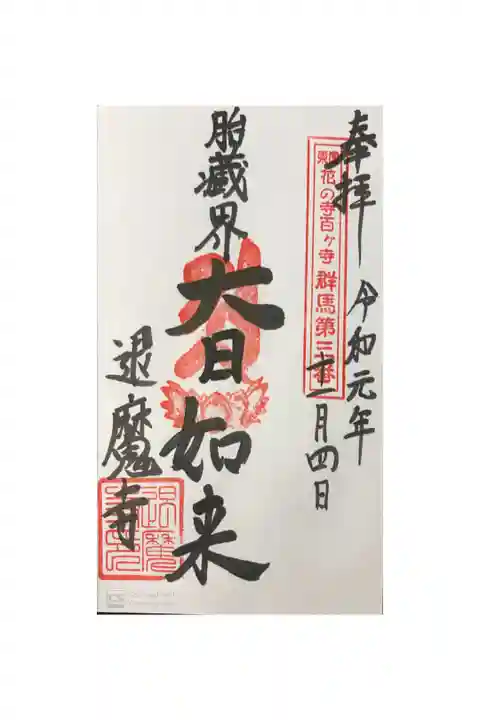 奉拝
令和元年
十一月四日
東国花の寺百ヶ寺 群馬第三番
胎蔵界
大日如来
退魔寺